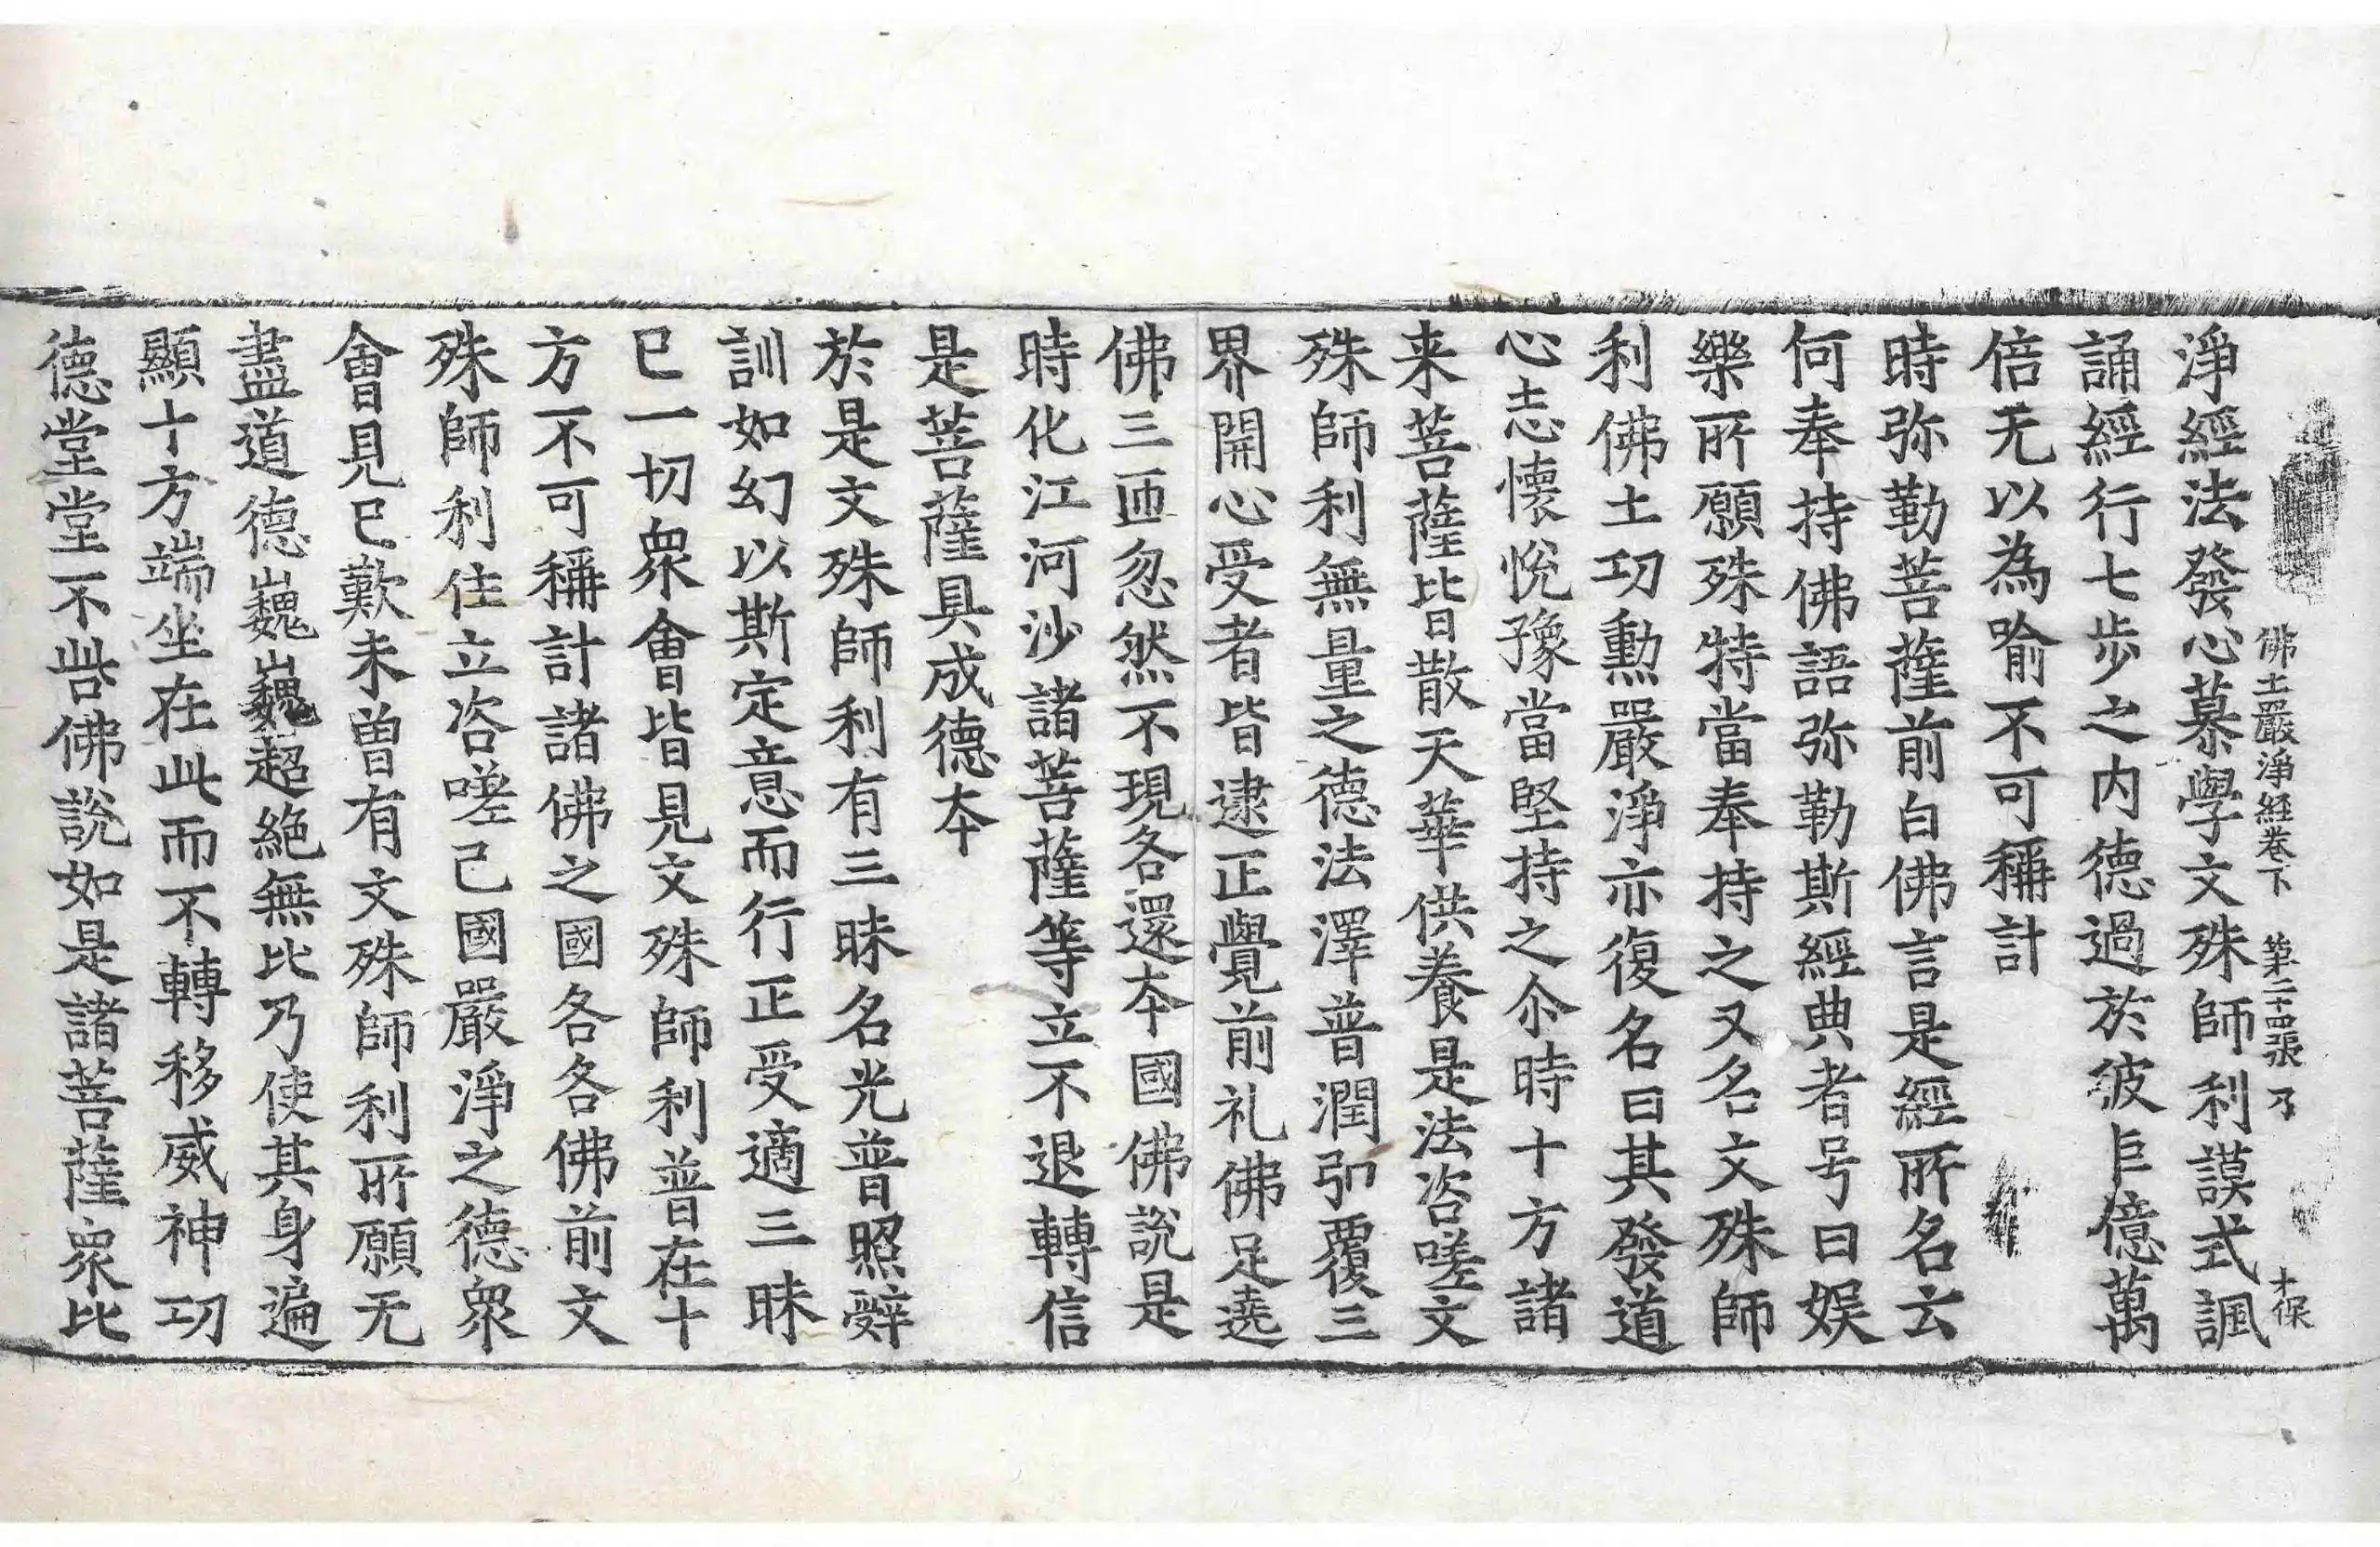 佛土嚴淨經卷下 第二十四張 乃 才保
淨經法發心慕學文殊師利謨式諷
誦經行七步之内德過於彼巨億萬
倍无以為喻不可稱計
時弥勒菩薩前白佛言是經所名云
何奉持佛語弥勒斯經典者号曰娱
樂所願殊特當奉持之又名文殊師
利佛土㓛勲嚴淨亦復名曰其發道
心志懷悅豫當堅持之尒時十方諸
来菩薩皆散天華供養是法咨嗟文
殊師利無量之德法澤普潤弘覆三
界開心受者皆逮正覺前礼佛足遶
佛三匝忽然不現各還夲國佛說是
時化江河沙諸菩薩等立不退轉信
是菩薩具成德夲
於是文殊師利有三昧名光普照辤
訓如幻以斯定意而行正受適三昧
巳一切衆會皆見文殊師利普在十
方不可稱計諸佛之國各各佛前文
殊師利住立咨嗟己國嚴淨之德衆
會見巳歎未曽有文殊師利所願无
盡道德巍巍超絶無比乃使其身遍
顯十方端坐在此而不轉移威神㓛
德堂堂不呰佛說如是諸菩薩衆比